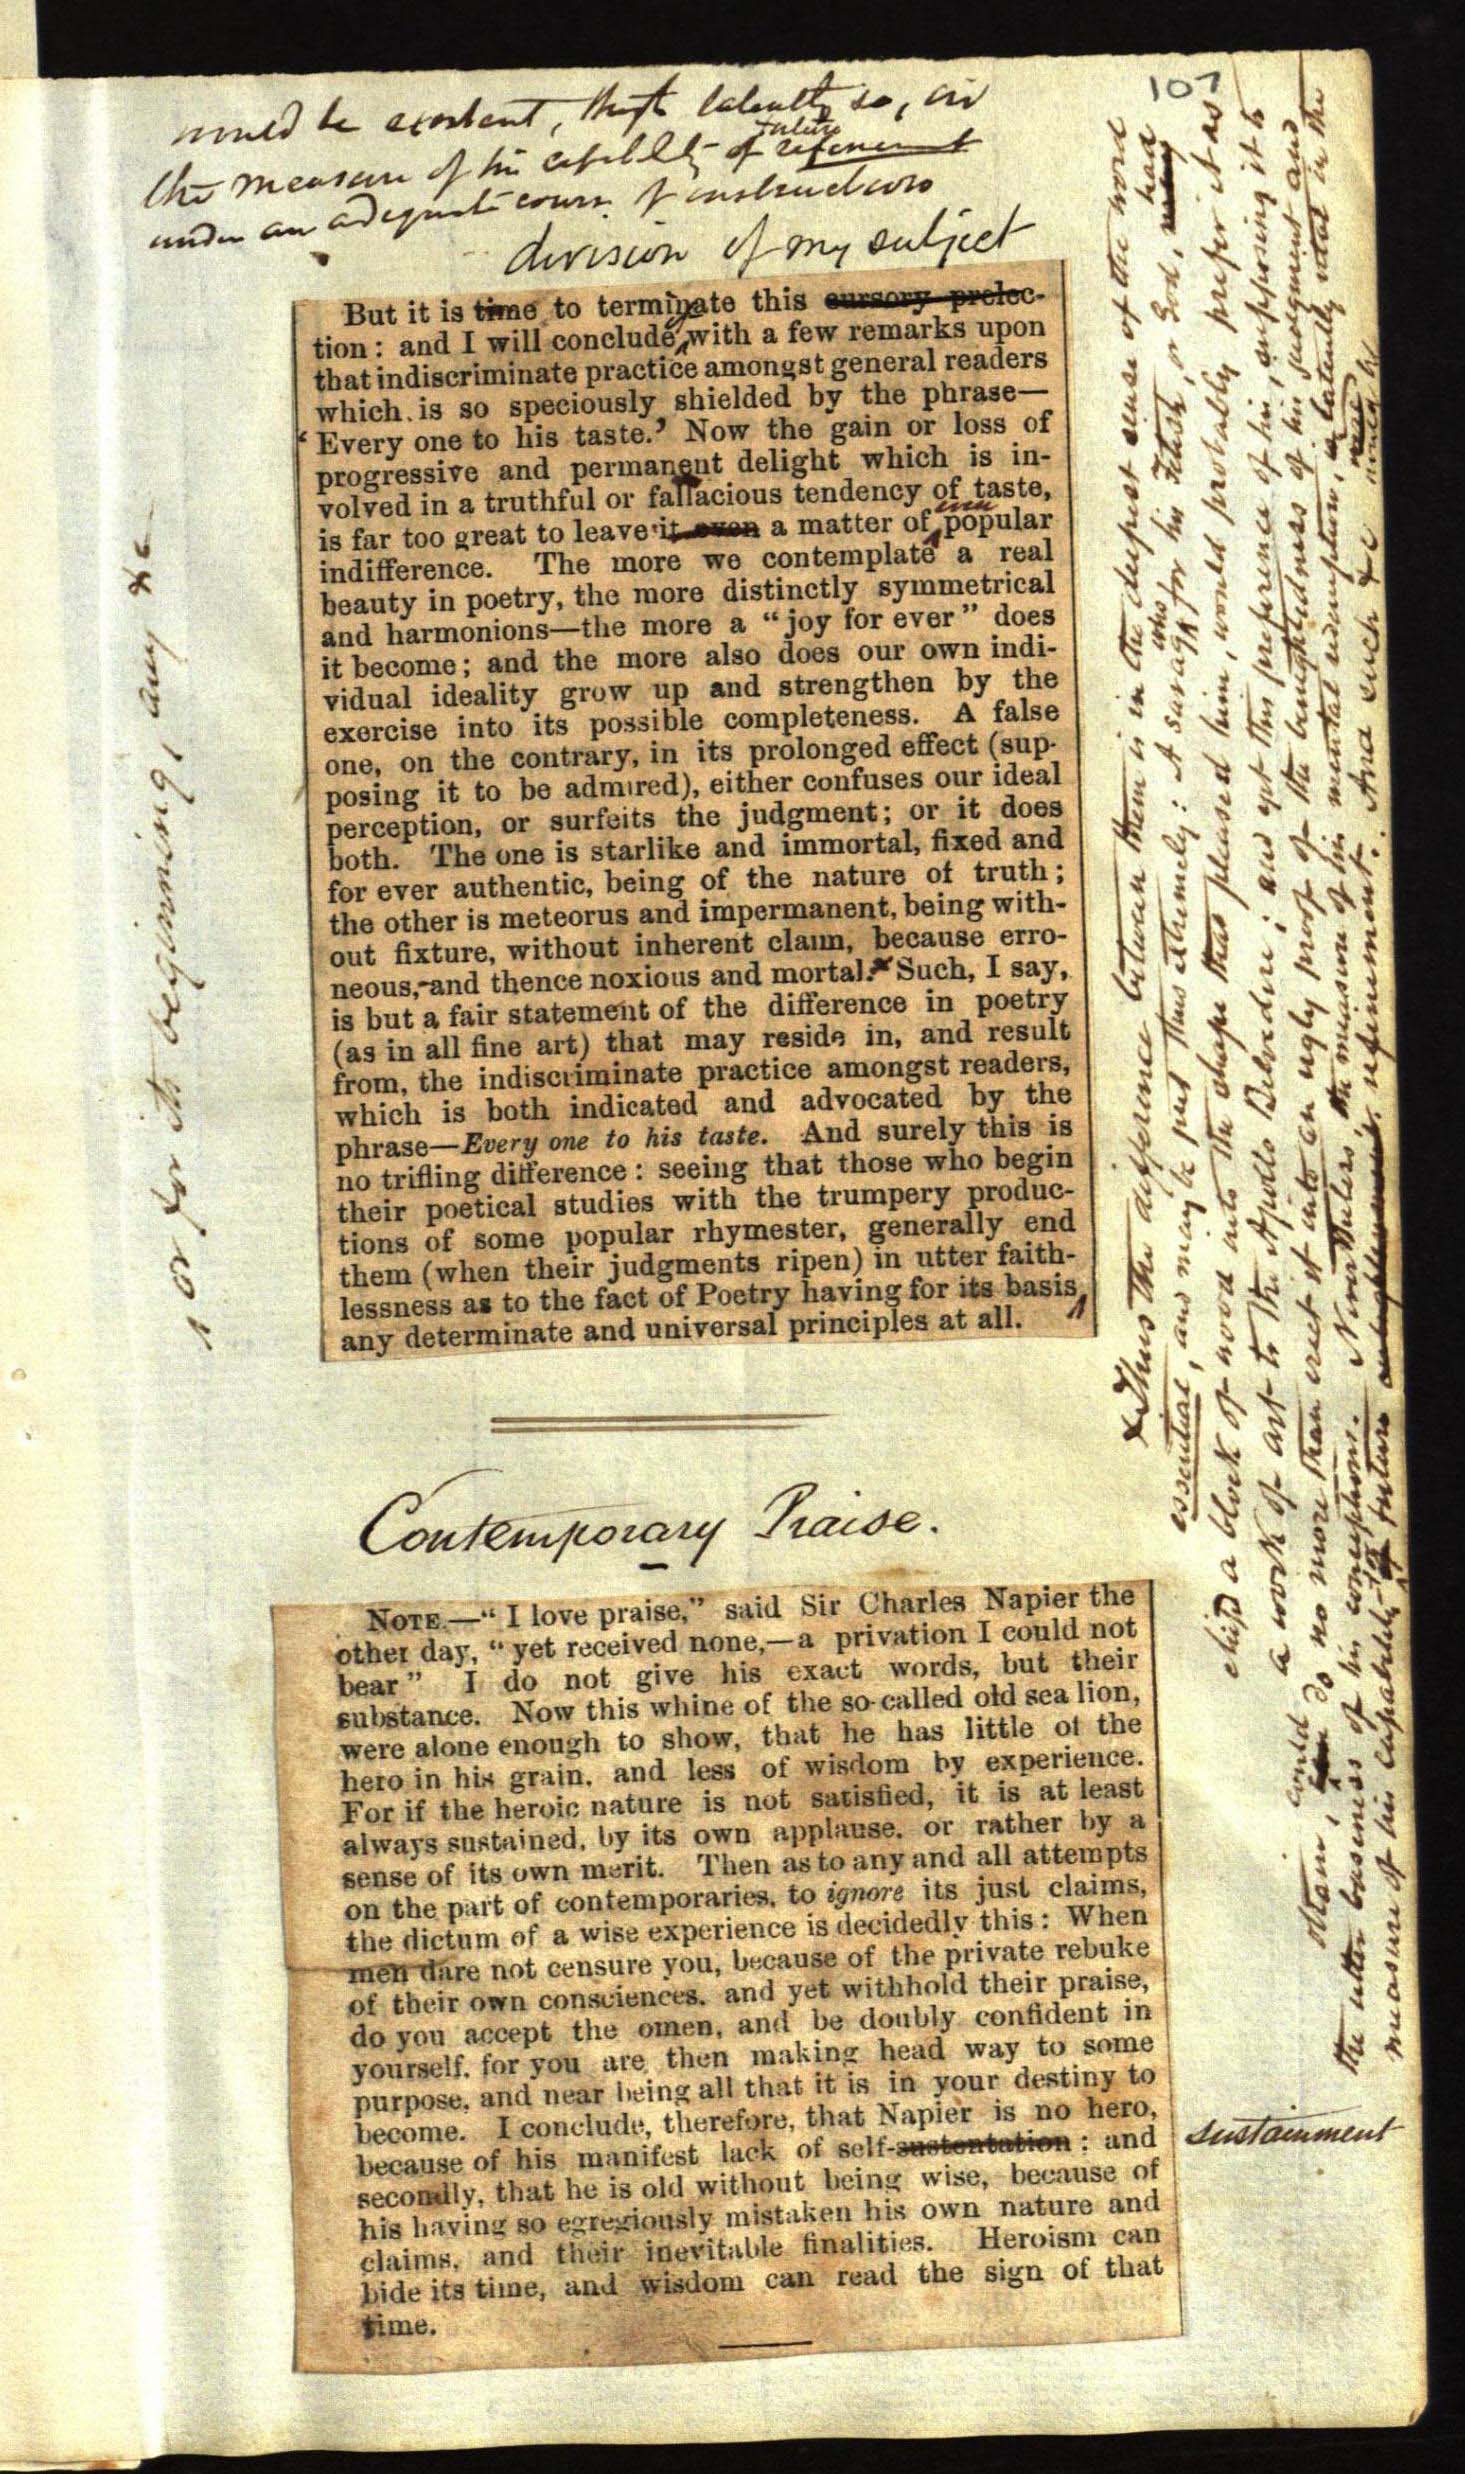 107
would be existent, though latently so, in
the measure of his capability of future refinement
under an adequate course of instruction
division of my subject
But it is time to terminate this cursory prelec-
tion: and I will conclude with a few remarks upon
that indiscriminate practice amongst general readers
which is so speciously shielded by the phrase—
‘Every one to his taste.’ Now the gain or loss of
progressive and permanent delight which is in-
volved in a truthful or fallacious tendency of taste,
is far too great to leave it even a matter of even popular
indifference. The more we contemplate a real
beauty in poetry, the more distinctly symmetrical
and harmonions—the more a “joy for ever” does
it become; and the more also does our own indi-
vidual ideality grow up and strengthen by the
exercise into its possible completeness. A false
one, on the contrary, in its prolonged effect (sup-
posing it to be admired), either confuses our ideal
perception, or surfeits the judgment; or it does
both. The one is starlike and immortal, fixed and
for ever authentic, being of the nature of truth;
the other is meteorus and impermanent, being with-
out fixture, without inherent claim, because erro-
neous,-and thence noxious and mortal. Such, I say,
is but a fair statement of the difference in poetry
(as in all fine art) that may reside in, and result
from, the indiscriminate practice amongst readers,
which is both indicated and advocated by the
phrase—Every one to his taste. And surely this is
no trifling difference: seeing that those who begin
their poetical studies with the trumpery produc-
tions of some popular rhymester, generally end
them (when their judgments ripen) in utter faith-
lessness as to the fact of Poetry having for its basis
any determinate and universal principles at all.
1 or for its beginning, any &c
x Thus the difference between them is in the deepest sense of the word
essential, and may be put thus extremely: A savage who for his Fetish, or God, had
chip'd a block of wood into the shape that pleased him, would probably prefer it as
a work of art to the Apollo Belvedere; and yet this preference of his, supposing it to
obtain, could do no more than erect it into an ugly proof of the benightedness of his judgment and
the utter baseness of his conceptions. Nevertheless, the measure of his mental redemption, latently in the
measure of his capability for future refinement. And such &c
Contemporary Praise.
NOTE.—“I love praise,” said Sir Charles Napier the
other day, “yet received none,—a privation I could not
bear” I do not give his exact words, but their
substance. Now this whine of the so-called old sea lion,
were alone enough to show, that he has little of the
hero in his grain, and less of wisdom by experience.
For if the heroic nature is not satisfied, it is at least
always sustained, by its own applause, or rather by a
sense of its own merit. Then as to any and all attempts
on the part of contemporaries, to ignore its just claims,
the dictum of a wise experience is decidedly this: When
men dare not censure you, because of the private rebuke
of their own consciences, and yet withhold their praise,
do you accept the omen, and be doubly confident in
yourself, for you are then making head way to some
purpose, and near being all that it is in your destiny to
become. I conclude, therefore, that Napier is no hero,
because of his manifest lack of self-sustentation: and
sustainment
secondly, that he is old without being wise, because of
his having so egregiously mistaken his own nature and
claims, and their inevitable finalities. Heroism can
bide its time, and wisdom can read the sign of that
time.